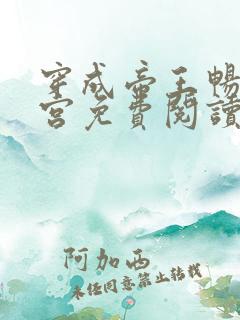 穿成帝王暢
宮免費閱讀
阿加西
未經同意禁止轉載